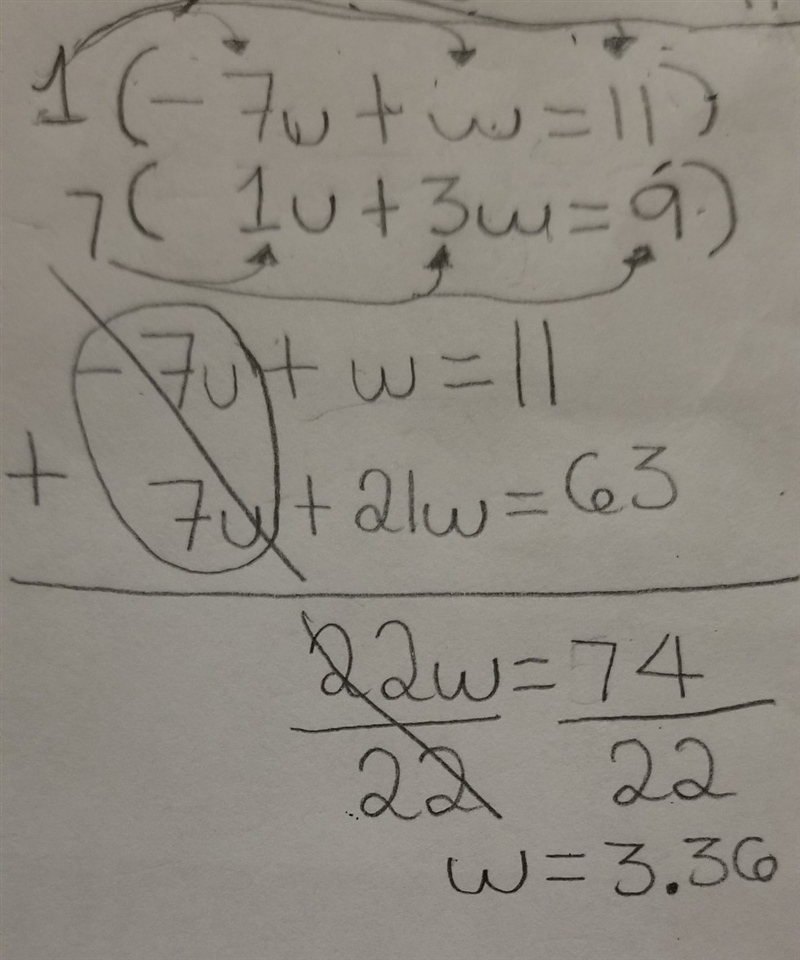 1(-7u + w = 11)
7( 1u + 3w = 9)
-7u + w = 11
+ 7u + 21w = 63
22w = 74
22 22
w = 3.36